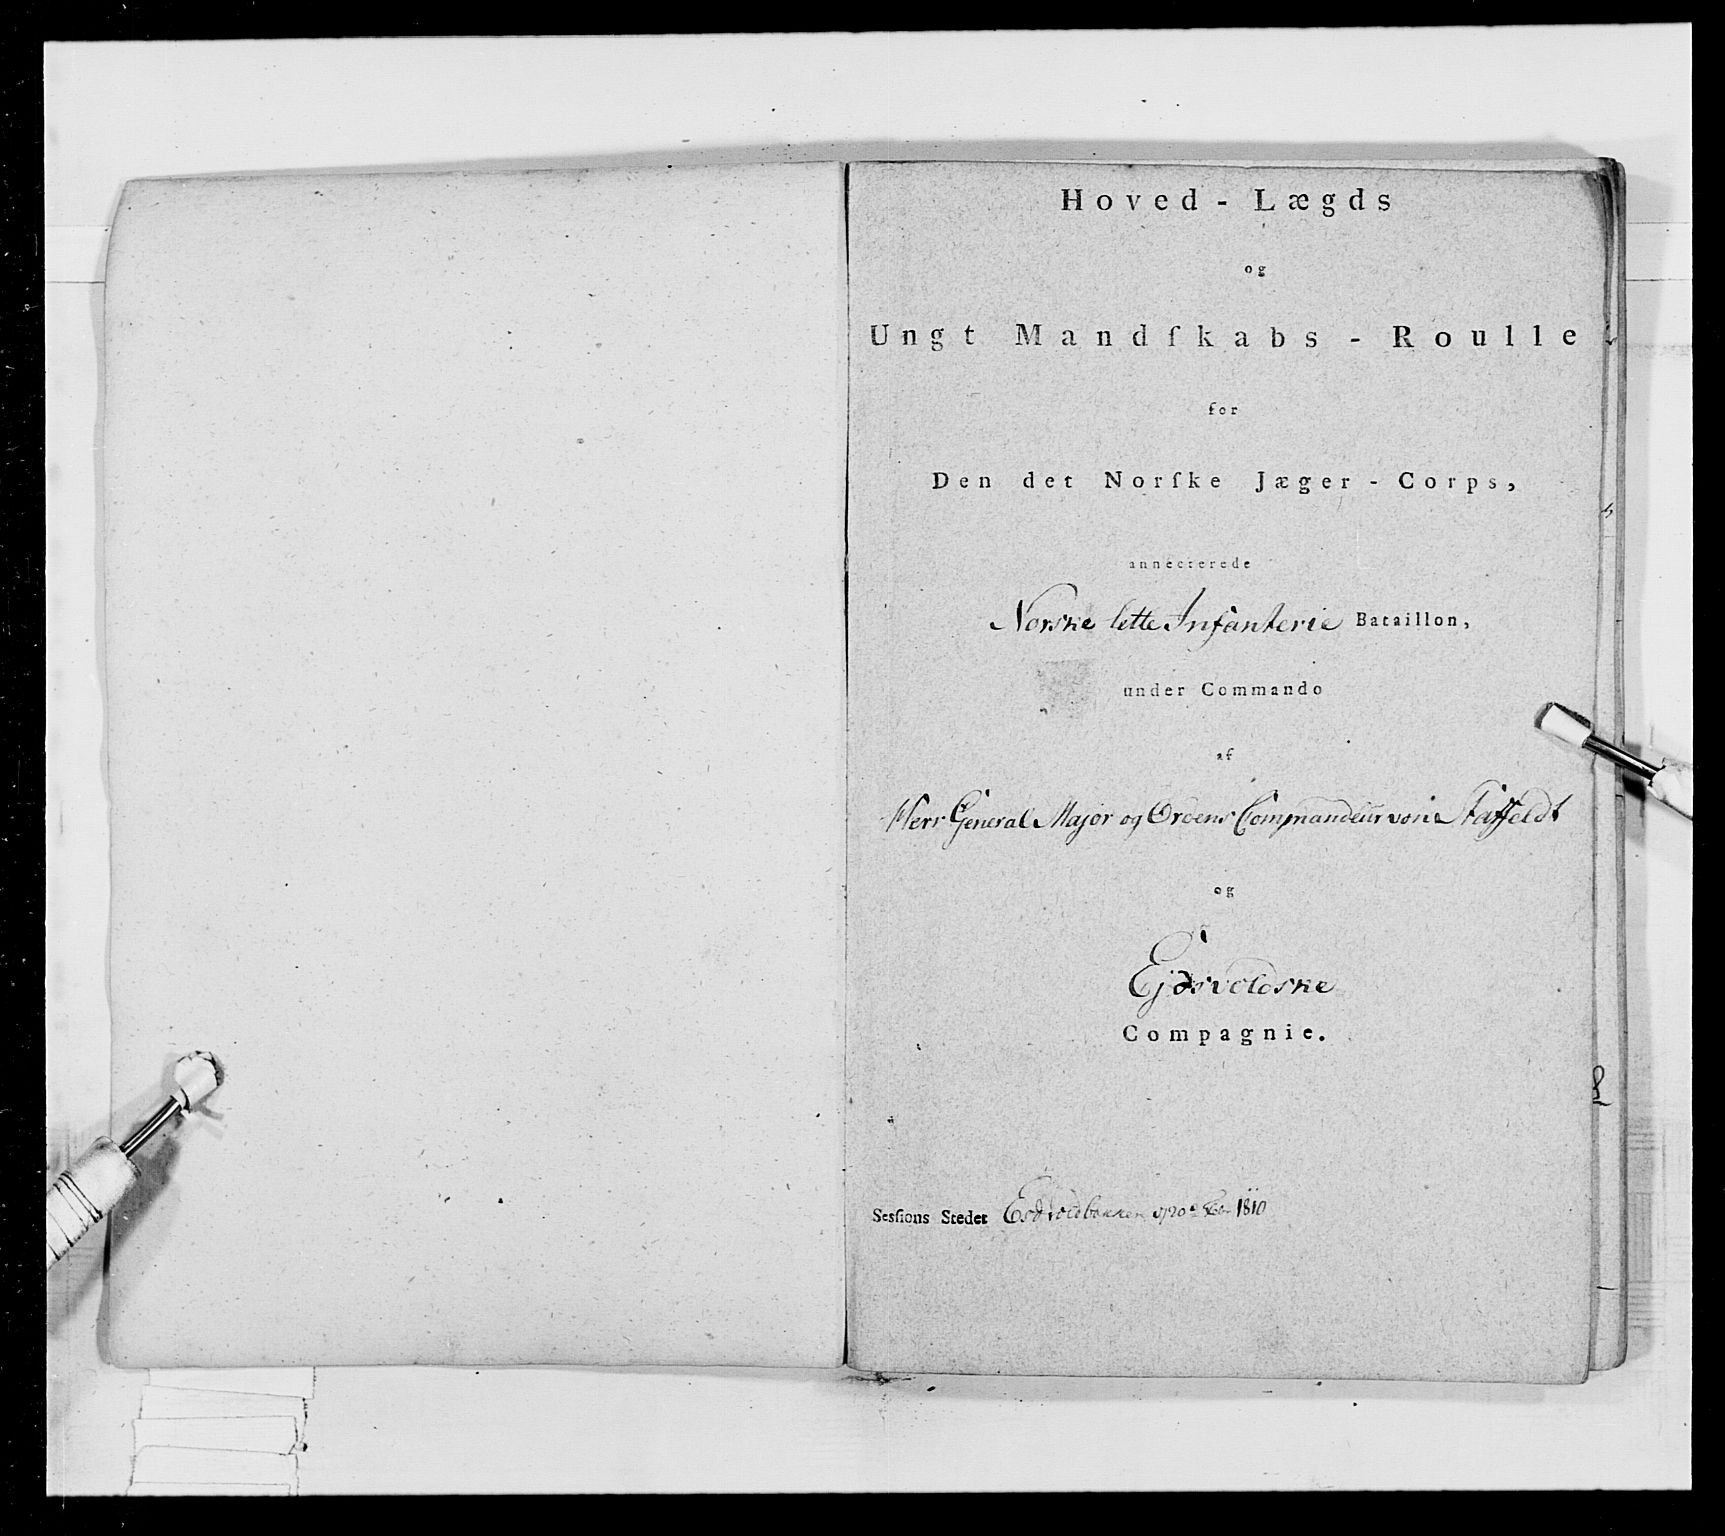 Hoved - Lægds
og
Ungt Mandſkabs - Roulle
for
Den det Norſke Jæger - Corps,
annecterede
Norske lette Infanterie Bataillon,
under Commando
af
Herr General Major og Ordens Commandeur von Staffeldt
og
Ejdsvoldske
Compagnie.
Sesſions Stedet Eidsvoldbakken 1810